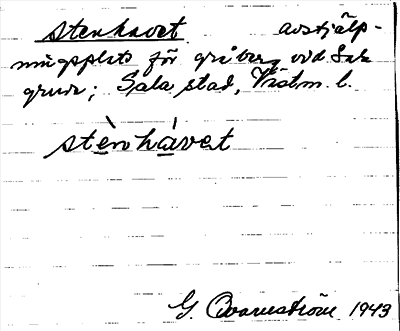 stenhavet avstjälp-
ningsplats för gråberg vid Sala
gruva; Sala stad, Västm. l.
stènhàvet
G. Brannström 1943